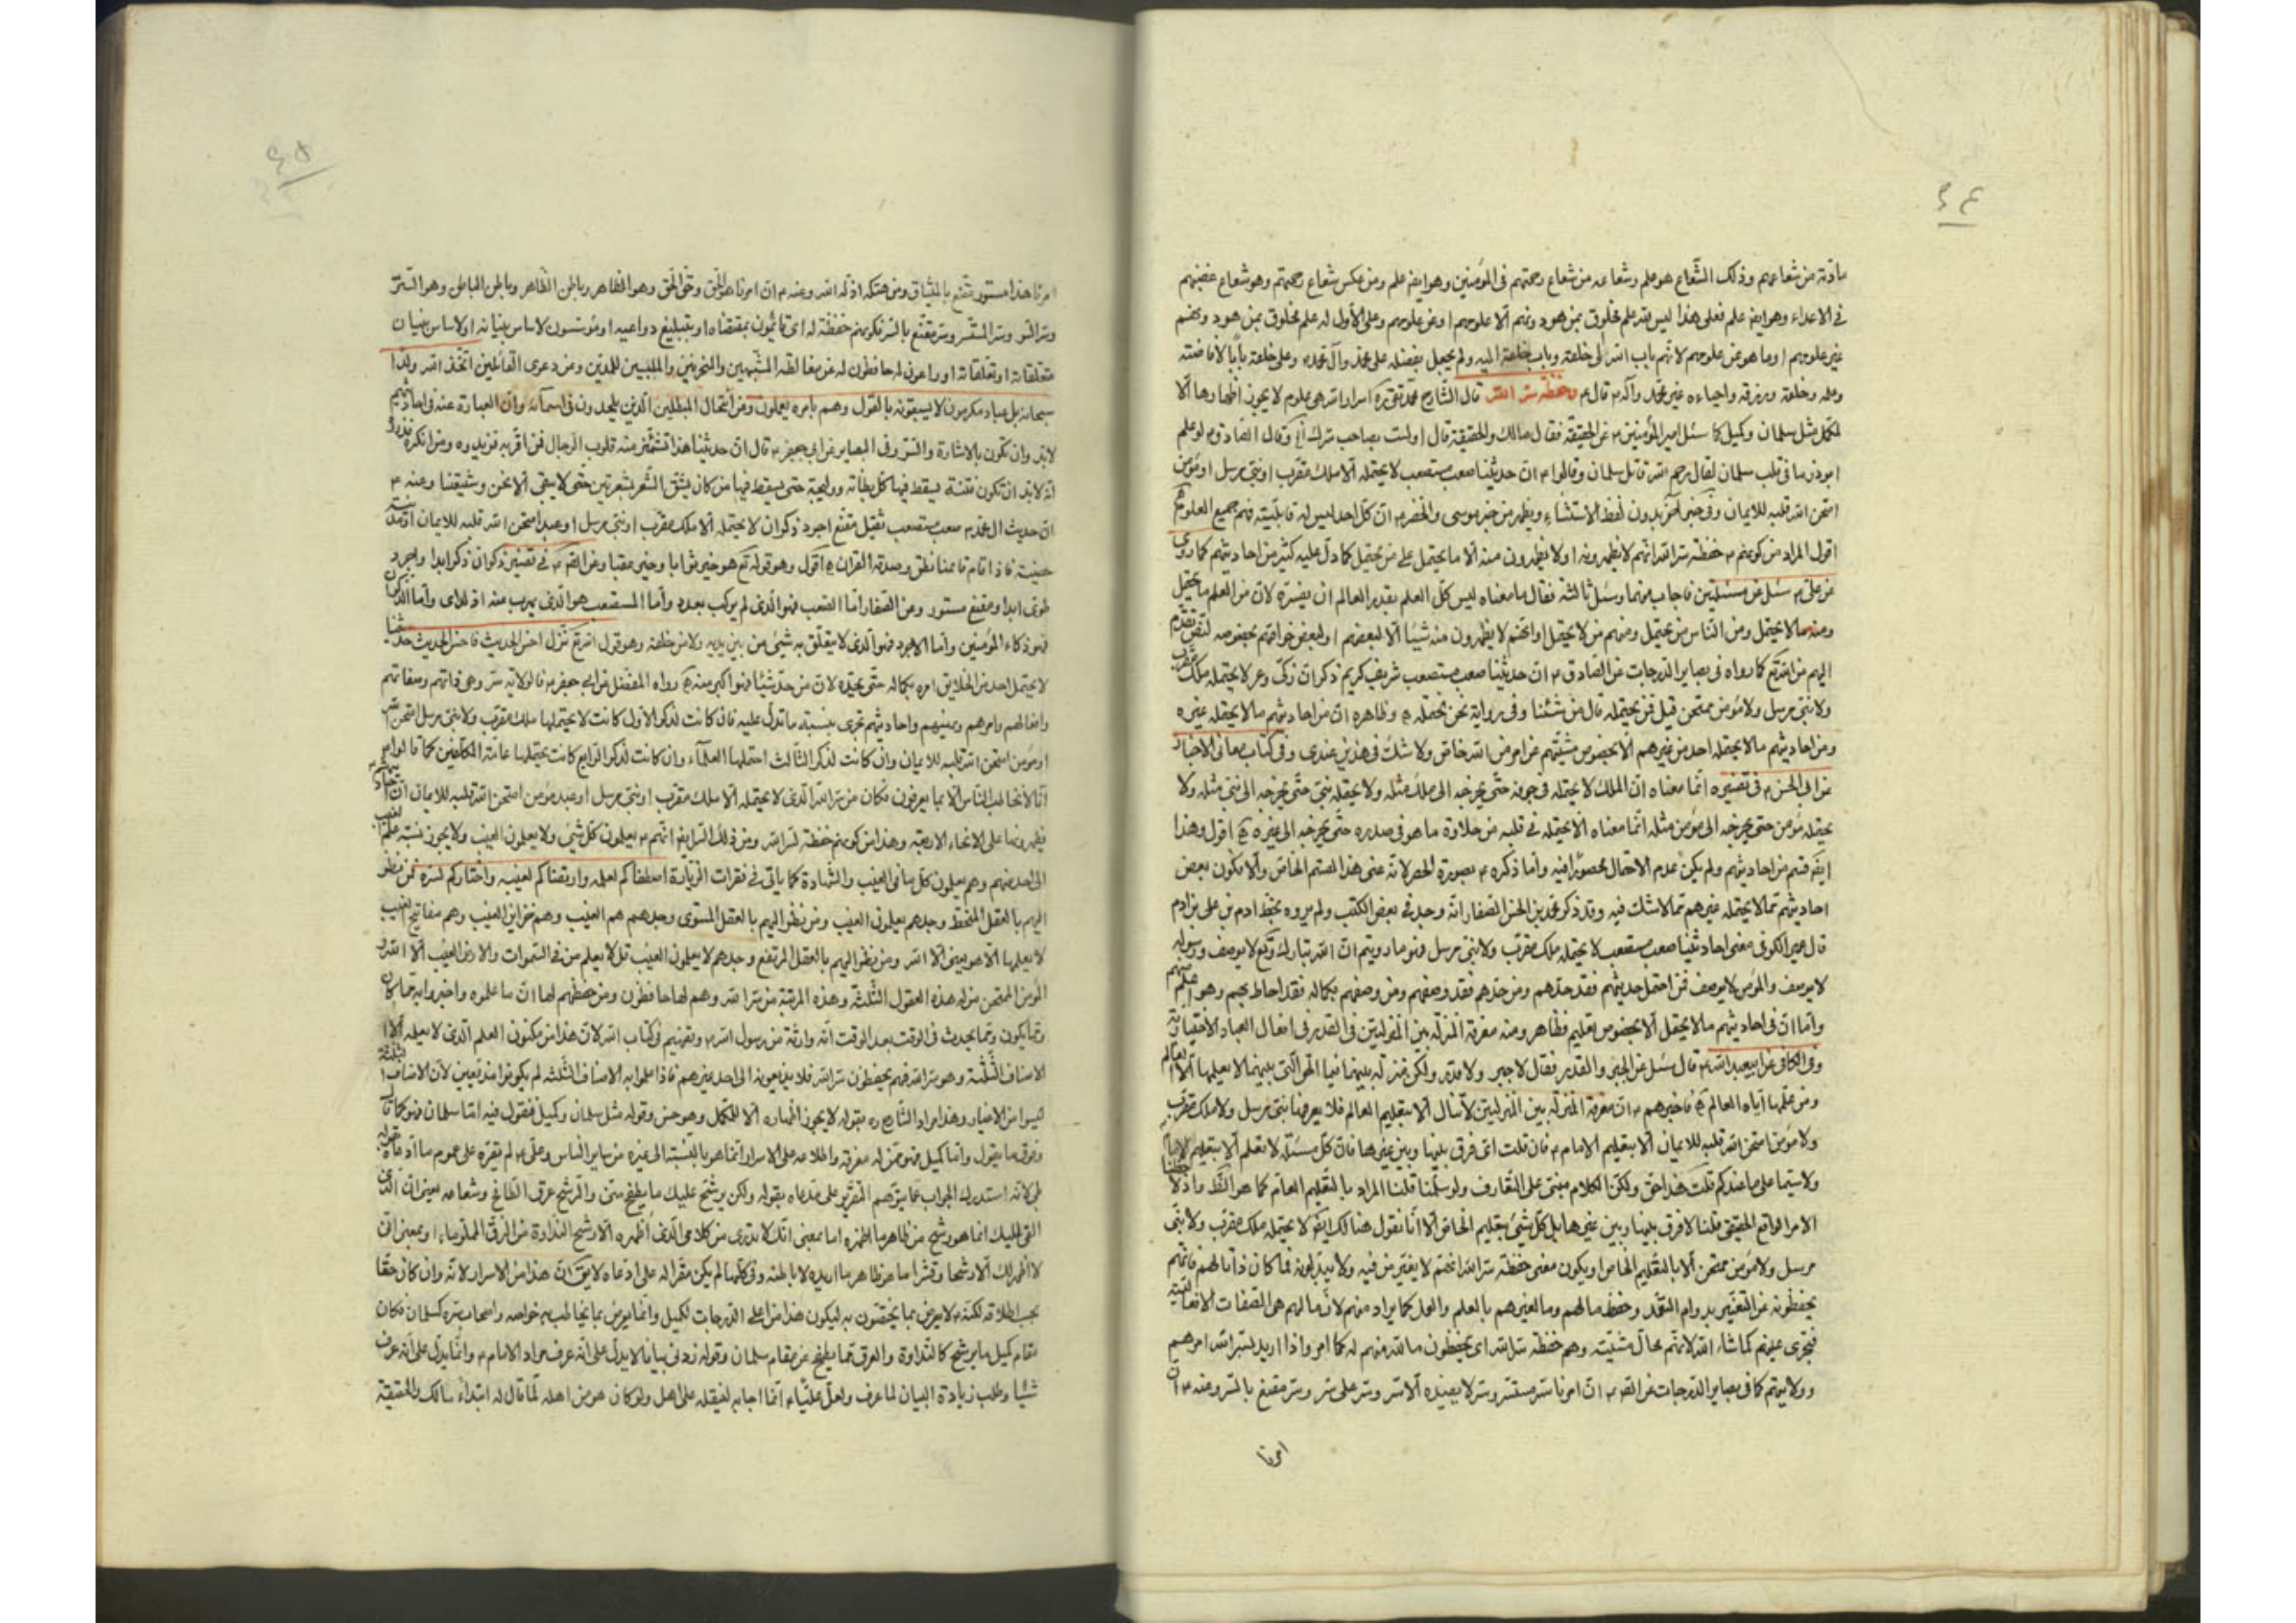 ٤٤
مادته من شعاعهم وذلك الشعاع هو علم وشعاعه من شعاع رحمتهم فى المؤمنين وهو ايضا علم ومن عكس شعاع رحمتهم وهو شعاع غضبهم
فى الاعداء وهو ايضا علم فعلى هذا ليس لله علم مخلوق بمن هو دونهم الا علومهم او عن علومهم وعلى الاول له علم مخلوق بمن هو دونهم
غير علومهم او ما هو عن علومهم لانهم باب الله الى خلقه وباب خلقه اليه ولم يجعل بفضله على محمد وآل محمد وعلى خلقه بابا لافاضته
وعلمه وخلقه ورزقه واحياءه غير محمد وآله ٣ قال ٤ وحفظة سر الله قال الشارح محمد تقى ره اسرار الله هى علوم لا يجوز اظهارها الا
لكمل مثل سلمان وكميل كما سئل امير المؤمنين ٤ عن الحقيقة فقال مالك والحقيقة قال اولست بصاحب سرك وقال الصادق ٤ لو علم
ابوذر ما فى قلب سلمان لقال رحم الله قاتل سلمان وقالوا ٤ ان حديثنا صعب مستصعب لا يحتمله الا ملك مقرب او نبى مرسل او مؤمن
امتحن الله قلبه للايمان وفى خبر آخر بدون لفظ الاستثناء ويظهر من خبر موسى والخضر ٤ ان كل احد ليس له قابلية فهم جميع العلوم
اقول المراد من كونهم ٤ حفظة سر الله انهم لا يظهرونه او لا يظهرون منه الا ما يحتمل على من يحتمل كما دل عليه كثير من احاديثهم كما روى
عن على ٤ سئل عن مسئلتين فاجاب عنهما وسئل ثالثة فقال ما معناه ليس كل العلم يقدر العالم ان يفسره لان من العلم ما يحتمل
ومنه ما لا يحتمل ومن الناس من يحتمل ومنهم من لا يحتمل او انهم لا يظهرون منه شيئا الا لبعضهم او لبعض خواصهم بخصوصه
اليهم من الله تع كما رواه فى بصاير الدرجات عن الصادق ٤ ان حديثنا صعب مستصعب شريف كريم ذكران ذكى وعر لا يحتمله ملك مقرب
ولا نبى مرسل ولا مؤمن ممتحن قيل فمن يحتمله قال من شئنا وفى رواية نحن نحتمله وظاهره ان من احاديثهم ما لا يحتمله غيره
ومن احاديثهم ما لا يحتمله احد من غيرهم الا بخصوص مشيتهم عن امر من الله خاص ولا شك فى هذين عندى وفى كتاب معانى الاخبار
عن ابى الحسن ٤ فى تفسيره انما معناه ان الملك لا يحتمله فى جوفه حتى يخرجه الى ملك مثله ولا يحتمله نبى حتى يخرجه الى نبى مثله ولا
يحتمله مؤمن حتى يخرجه الى مؤمن مثله انما معناه الا يحتمله فى قلبه من حلاوة ما هو فى صدره حتى يخرجه الى غيره اقول وهذا
ايضا قسم من احاديثهم ولم يكن عدم الاحتمال محصورا فيه واما ذكره ٤ بصورة الحصر لانه عنى هذا القسم الخاص والا يكون بعض
احاديثهم مما لا يحتمله غيرهم مما لا شك فيه وقد ذكر محمد بن الحسن الصفار انه وجد فى بعض الكتب ولم يروه بخط ادم بن على بن ادم
قال عمير الكوفى معنى احاديثنا صعب مستصعب لا يحتمله ملك مقرب ولا نبى مرسل فهو ما رويتم ان الله تبارك وتع لا يوصف ورسوله
لا يوصف والمؤمن لا يوصف فمن احتمل حديثهم فقد حدهم ومن حدهم فقد وصفهم ومن وصفهم بكماله فقد احاط بهم وهو اعلم منهم
واما ان فى احاديثهم ما لا يحتمل الا بخصوص تعليم فظاهر ومنه معرفة المنزلة بين المنزلتين فى القدر فى افعال العباد الاختيارية
وفى الكافى عن ابيعبدالله ٤ قال سئل عن الجبر والقدر فقال لا جبر ولا قدر ولكن منزلة بينهما فيها الحق التى بينهما لا يعلمها الا العالم
ومن علمها اياه العالم فاخبرهم ٤ ان معرفة المنزلة بين المنزلتين لا تنال الا بتعليم العالم فلا يعرفها نبى مرسل ولا ملك مقرب
ولا مؤمن امتحن الله قلبه للايمان الا بتعليم الامام ٤ فان قلت اى فرق بينها وبين غيرها فان كل مسئلة لا تعلم الا بتعليم
ولا سيما على ما عندكم قلت هذا حق ولكن الكلام مبنى على التعارف ولو سلمنا قلنا المراد بالتعليم العام كما هو
الامر الواقع الحقيقى قلنا لا فرق بينها وبين غيرها بل كل شئ بتعليم الخاص الا انا نقول هنالك ايضا لا يحتمله ملك مقرب ولا نبى
مرسل ولا مؤمن ممتحن الا بالتعليم الخاص او يكون معنى حفظة سر الله انهم لا يغيرون فيه ولا يبدلونه فما كان ذاتا لهم فانهم
يحفظونه عن التغيير بدوام التعهد وحفظ ما لهم وما لغيرهم بالعلم والعمل كما يراد منهم لان ما لهم هى الصفات
فتجرى عليهم كما شاء الله لانهم محال مشيته وهم حفظة سر الله اى يحفظون ما لله منهم له كما امر واذا اريد بسر الله امرهم
وولايتهم كما فى بصاير الدرجات عن الصادق ٤ ان امرنا سر مستسر وسر لا يفيده الا سر وسر على سر وسر مقنع بالسر وعنه ٤ ان
امرنا
٤٥
امرنا هذا مستور مقنع بالميثاق ومن هتكه اذله الله وعنه ٤ ان امرنا هو الحق وحق الحق وهو الظاهر وباطن الظاهر وباطن الباطن وهو السر
وسر السر وسر المستسر وسر مقنع بالسر فكونهم حفظة له اى قائمون بمقتضاه او بتبليغ دواعيه او مؤسسون لاساس بنيانه او لاساس بنيان
متعلقاته او تعلقاته او راعون له حافظون له عن مغالطة المشبهين والملبسين للدين ومن دعوى القائلين اتخذ الله ولدا
سبحانه بل عباد مكرمون لا يسبقونه بالقول وهم بامره يعملون ومن انتحال المبطلين الذين يلحدون فى اسمآئه وان العبارة عنه فى احاديثهم
لابد وان تكون بالاشارة والستر وفى البصاير عن ابى جعفر ٤ قال ان حديثنا هذا تشمئز منه قلوب الرجال فمن اقر به فزيدوه ومن انكره فذروه
انه لابد ان تكون فتنة يسقط فيها كل بطانة ووليجة حتى يسقط فيها من كان يشق الشعر بشعرتين حتى لا يبقى الا نحن وشيعتنا وعنه ٤
ان حديث ال محمد صعب مستصعب ثقيل مقنع اجرد ذكوان لا يحتمله الا ملك مقرب او نبى مرسل او عبد امتحن الله قلبه للايمان او مدينة
حصينة فاذا قام قائمنا نطق وصدقه القران اقول وهو قوله تع هو خير ثوابا وخير عقبا وعن فى تفسير ذكوان ذكر ابدا واجرد
طرى ابدا ومقنع مستور وعن الصفار اما الصعب فهو الذى لم يركب بعد واما المستصعب هو الذى يهرب منه اذا راى واما الذكوان
فهو ذكاء المؤمنين واما الاجرد فهو الذى لا يتعلق به شئ من بين يديه ولا من خلفه وهو قول الله تع نزل احسن الحديث فاحسن الحديث حديثنا
لا يحتمل احد من الخلايق امره بكماله حتى يحده لان من حد شيئا فهو اكبر منه رواه المفضل عن ابى جعفر ٤ فالولاية سر وهى ذاتهم وصفاتهم
وافعالهم وامرهم ونهيهم واحاديثهم تجرى بنسبة ما تدل عليه فان كانت لذكر الاول كانت لا يحتملها ملك مقرب ولا نبى مرسل
او مؤمن امتحن الله قلبه للايمان وان كانت لذكر الثالث احتملها العلمآء وان كانت لذكر الرابع كانت يحتملها عامة المكلفين كما قالوا
انا لا نخاطب الناس الا بما يعرفون فكان من سر الله الذى لا يحتمله الا ملك مقرب او نبى مرسل او عبد مؤمن امتحن الله قلبه للايمان
فيظهرونها على الانحاء الاربعة وهذا من كونهم حفظة لسر الله ومن ذلك السر ايضا انهم ٤ يعلمون كل شئ ولا يعلمون الغيب ولا يجوز نسبة علم الغيب
الى احد منهم وهم يعلمون كل ما فى الغيب والشهادة كما ياتى فى فقرات الزيارة اصطفاكم لعلمه وارتضاكم لغيبه واختاركم لسره فمن نظر
اليهم بالعقل المنخفض وجدهم يعلمون الغيب ومن نظر اليهم بالعقل المستوى وجدهم هم الغيب وهم خزاين الغيب وهم مفاتيح الغيب
لا يعلمها الا هو يعنى الا الله ومن نظر اليهم بالعقل المرتفع وجدهم لا يعلمون الغيب قل لا يعلم من فى السموات والارض الغيب الا الله
المؤمن الممتحن من له هذه العقول الثلثة وهذه المرتبة من سر الله وهم لها حافظون ومن حفظهم لها ان ما علموه واخبروا به مما كان
ومما يكون ومما يحدث فى الوقت بعد الوقت انه وراثة من رسول الله ٣ وتفهيم فى كتاب الله لان هذا من مكنون العلم الذى لا يعلمه الا
الاصناف الثلثة وهو سر الله فهم يحفظون سر الله فلا يذيعونه الى احد غيرهم فاذا علموا به الاصناف الثلثة لم يكونوا مذيعين لان الاصناف الثلثة
ليسوا من الاغيار وهذا مراد الشارح ره بقوله لا يجوز اظهاره الا للكمل وهو حسن وقوله مثل سلمان وكميل فنقول فيه اما سلمان فهو كما قال
وفوق ما يقول واما كميل فهو ممن له معرفة واطلاعه على الاسرار انما هو بالنسبة الى غيره من ساير الناس وعلى ٤ لم يقره على عموم ما ادعاه
بل لانه استدرك الجواب عما يتوهم التقرير على مدعاه بقوله ولكن يرشح عليك ما يطفح منى والرشح عرق الطافح وشعاعه يعنى ان الذى
القى اليك انما هو رشح من ظاهر ما اظهره اما بمعنى انك لا تدرى من كلامى الذى اظهره الا رشح النداوة من الزق المملو ماء او بمعنى انى
لا اظهر لك الا رشحا وقشرا ما هو ظاهر ما اريده لا باطنه وفى كلها لم يكن مقرا له على ادعاه لا يق ان هذا من الاسرار لانه وان كان حقا
يجب اطلاقه لكنه ٤ لا يعرض بما يختصون به ليكون هذا من اعلى الدرجات لكميل وانما يعرض بما يخاطب به خواصه واصحاب سره كسلمان فكان
مقام كميل ما يرشح كالنداوة والعرق مما يطفح عن مقام سلمان وقوله زدنى بيانا لا يدل على انه عرف مراد الامام ٤ وانما يدل على انه عرف
شيئا وطلب زيادة البيان لما عرف ولعل عليا ٤ انما اجابه لينقله على اهل ولو كان هو من اهله لما قال له ابتداء مالك والحقيقة